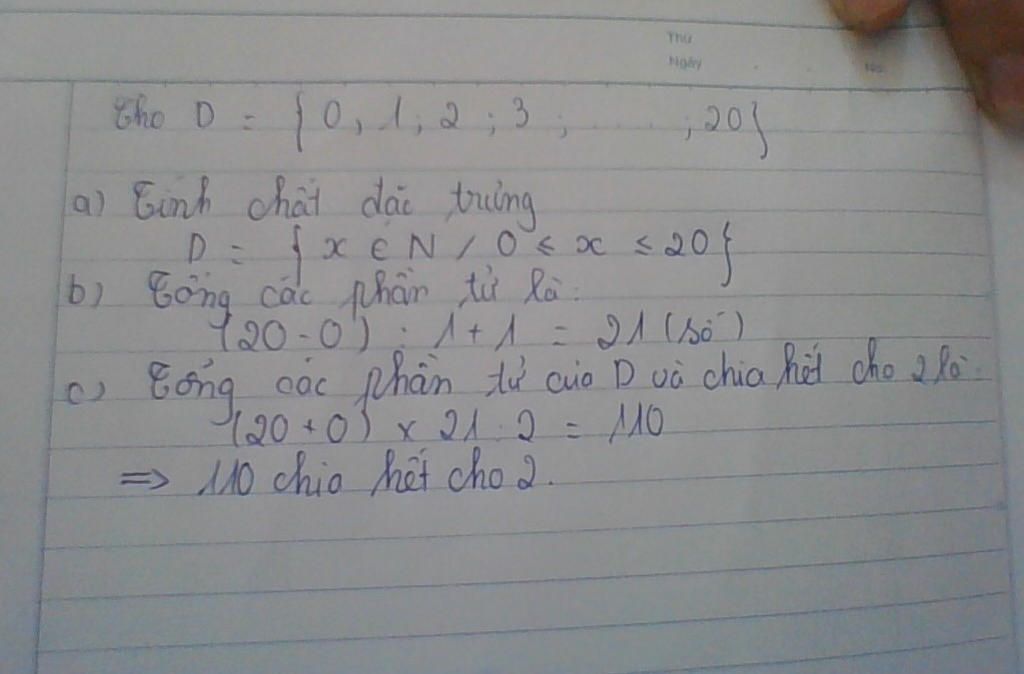 Thứ
Ngày
No.
Cho D = { 0, 1; 2 ; 3 ; ..... ; 20 }
a) Tính chất đặc trưng
D = { x ∈ N / 0 ≤ x ≤ 20 }
b) Tổng các phần tử là:
(20 - 0) : 1 + 1 = 21 (số)
c) Tổng các phần tử của D và chia hết cho 2 là:
(20 + 0) x 21 : 2 = 110
=> 110 chia hết cho 2.